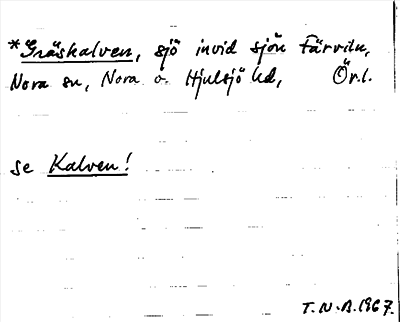 *Gräskalven, sjö invid sjön Färviln,
Nora sn, Nora o. Hjulsjö hd, Ör.l.
se Kalven!
T.N.B.1967.